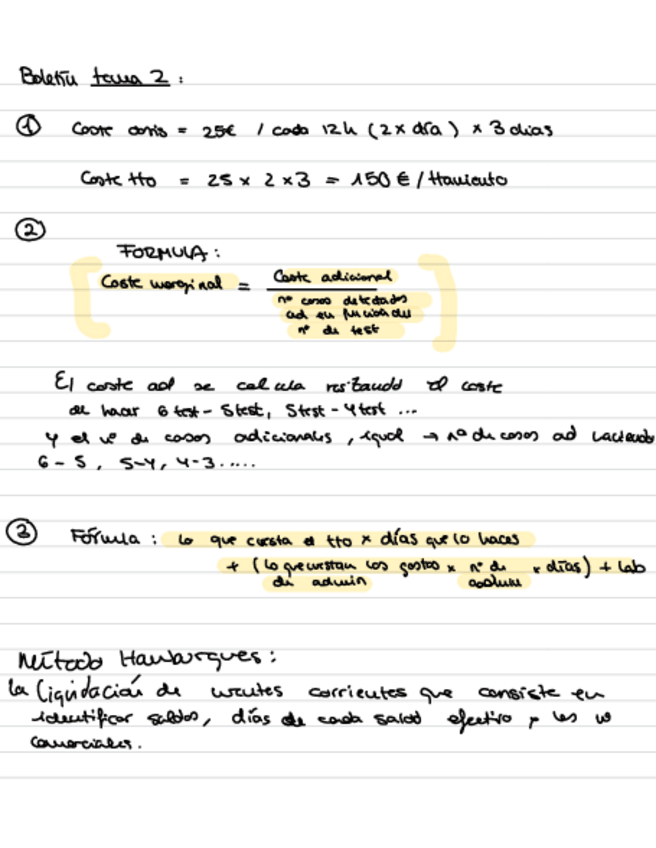 Boletín tema 2 :
① Coste dosis = 25€ / cada 12h (2 x día) x 3 días
Coste tto = 25 x 2 x 3 = 150 € / tratamiento
②
FORMULA :
Coste marginal = Coste adicional
nº casos detectados
ad en función del
nº de test
El coste ad se calcula restando el coste
de hacer 6 test - 5 test, 5 test - 4 test ...
y el nº de casos adicionales, igual → nº de casos ad haciendo
6 - 5, 5-4, 4-3 .....
③ Fórmula : lo que cuesta el tto x días que lo haces
+ (lo que cuestan los gastos x nº de x días) + lab
de admin
Método Hamburgues :
la liquidación de cuentas corrientes que consiste en
identificar saldos, días de cada saldo efectivo y los
comerciales.